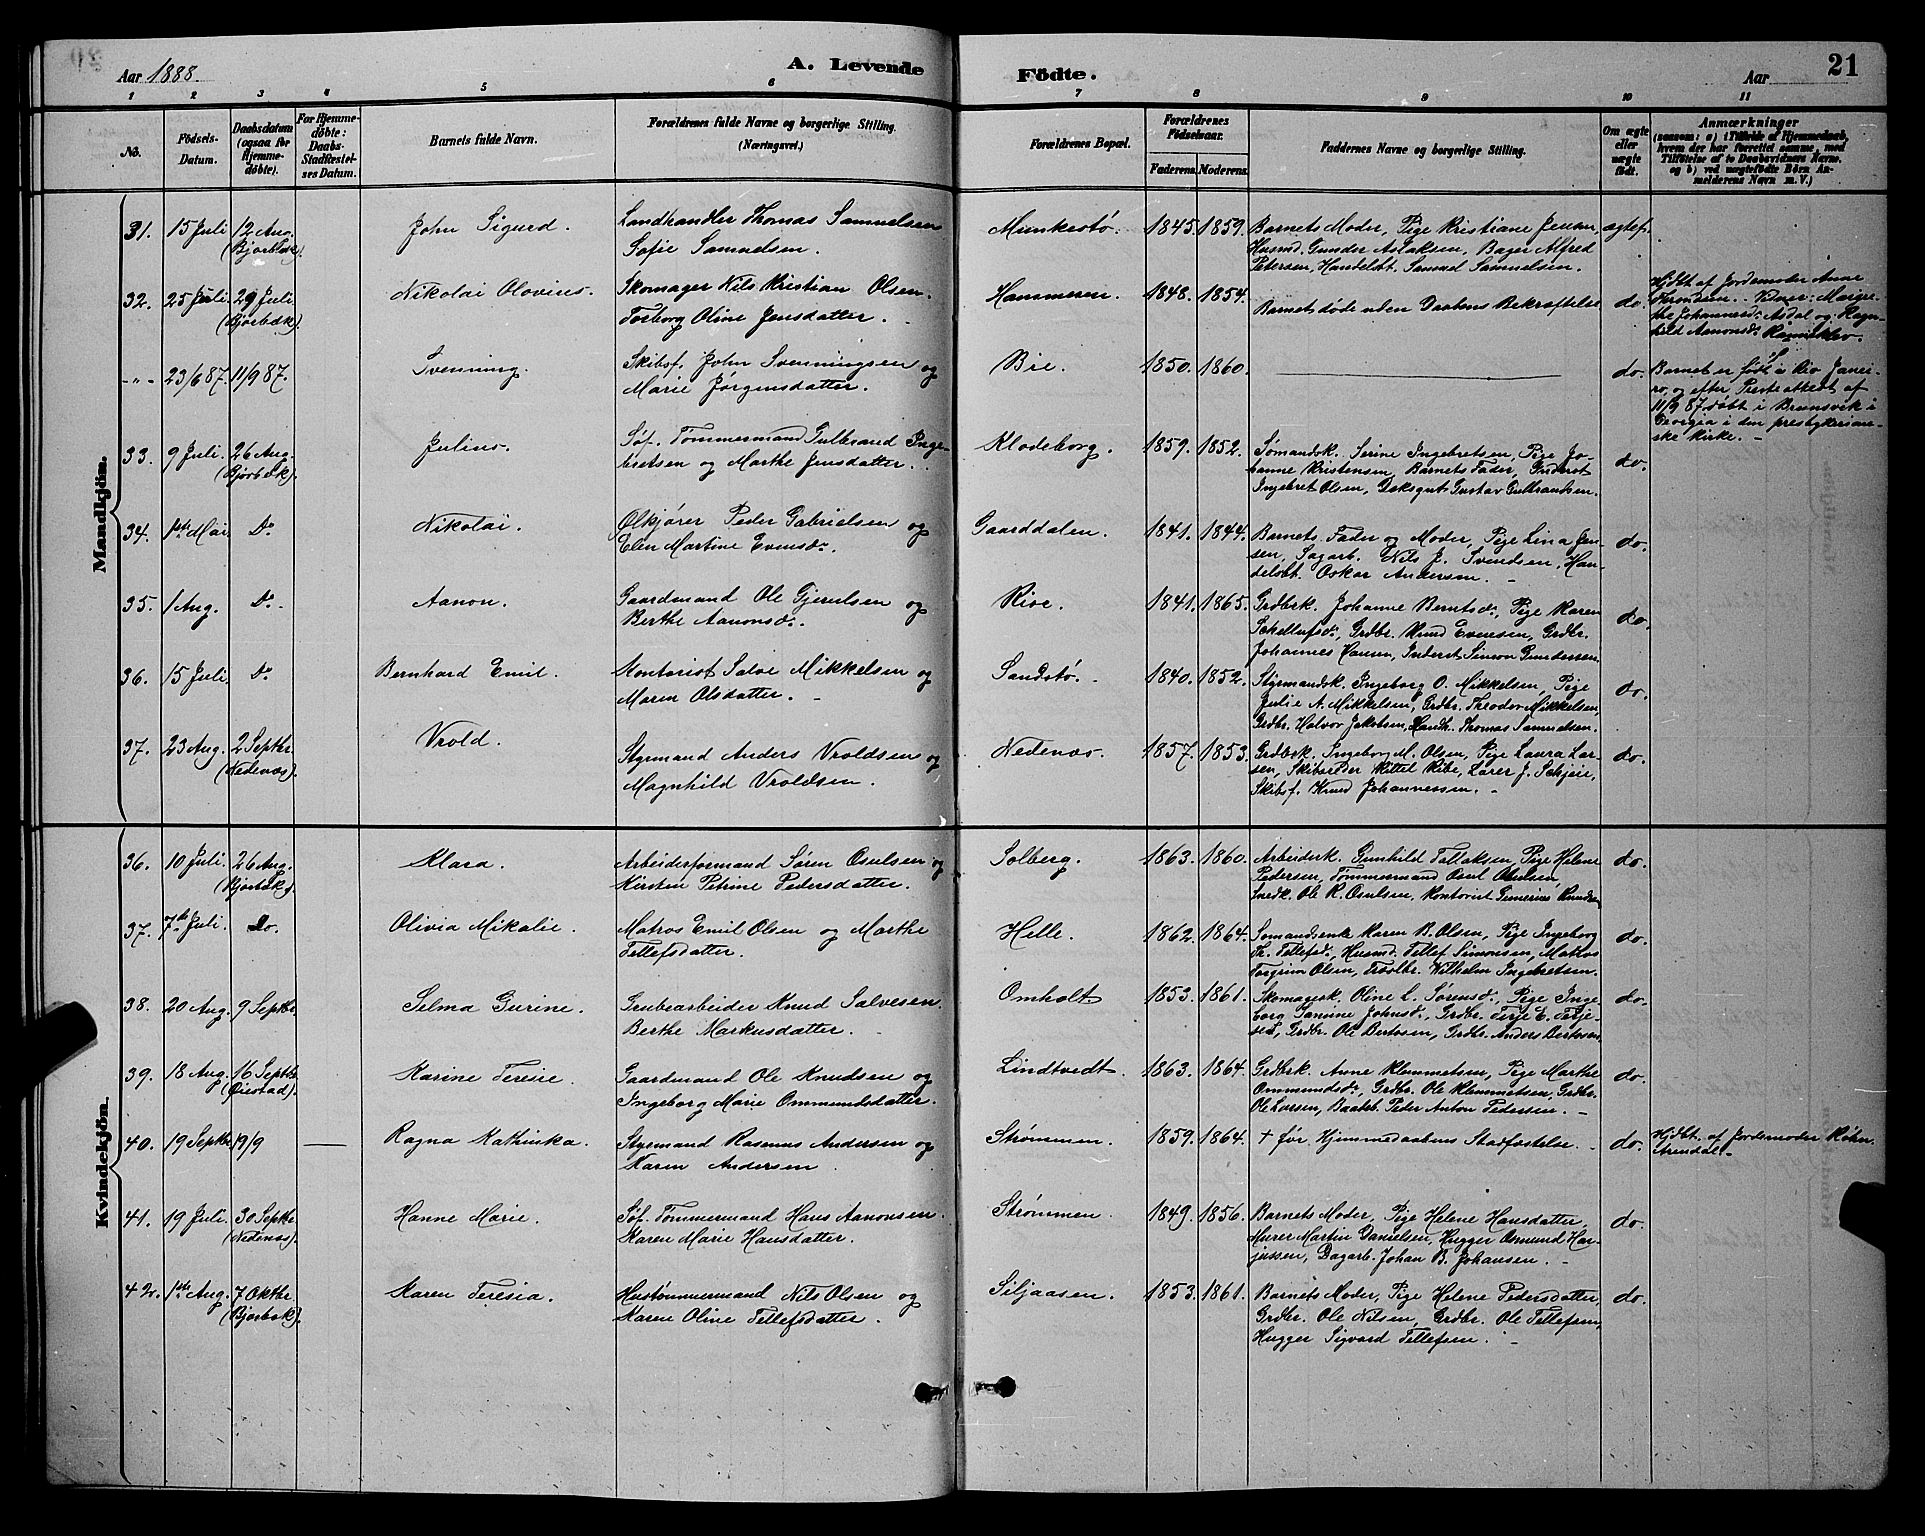 Aar 1888.
A. Levende
Födte.
Aar
21
1 2 3 4 5 6 7 8 9 10 11
No.
Födsels-
Datum.
Daabsdatum
(ogsaa for
Hjemme-
döbte).
For Hjemme-
döbte:
Daabs-
Stadfæstel-
ses Datum.
Barnets fulde Navn.
Forældrenes fulde Navne og borgerlige Stilling.
(Næringsvei.)
Forældrenes Bopæl.
Forældrenes
Födselsaar.
Faderens. Moderens.
Faddernes Navne og borgerlige Stilling.
Om ægte
eller
uægte
födt.
Anmærkninger
Mandkjön.
31. 15 Juli 12 Aug. John Sigurd. Landhandler Thomas Samuelsen Munkestø. 1845. 1859. Barnets Moder, Pige Kristiane Jensen, ægtef.
(Bjorbæk). Sofie Samuelsen. Husmd. Gunder Aslaksen, Bager Alfred
Petersen, Handelsbt. Samuel Samuelsen.
32. 25 Juli 29 Juli Nikolai Olovius. Skomager Nils Kristian Olsen. Hammeren. 1848. 1854. Barnet døde uden Daabens Bekræftelse do. Hjdbt. af Jordemoder Anne
(Bjorbæk). Torborg Oline Jensdatter. Vidner: Margre-
the Johannesd. Asdal og Ragn-
hild Aanonsd.
-"- 23/6 87. 11/9 87. Svenning. Skibsf. John Svenningsen og Bie. 1850. 1860. do. Barnet er født i Rio Janei-
Marie Jørgensdatter. ro, og efter Presteattest af
11/9 87 døbt i Brunsvik i
Georgia i den presbyterian-
ske Kirke.
33. 9 Juli. 26 Aug. Julius. Søf. Tømmermand Gulbrand Inge- Klodeborg. 1859. 1852. Sømandsk. Serine Ingebretsen, Pige Jo- do.
(Bjorbæk). bretsen og Marthe Jensdatter. hanne Kristensen, Barnets Fader, Inderst
Ingebret Olsen, Deksgut Gustav Gulbrantsen.
34. 1ste Mai. Do Nikolai. Ølkjører Peder Gabrielsen og Gaarddalen. 1841. 1844. Barnets Fader og Moder, Pige Lina Jen- do.
Elen Martine Evensd. sen, Sagarb. Nils J. Svendsen, Han-
delsbt. Oskar Andersen.
35. 1 Aug. Do Aanon. Gaardmand Ole Gjerulsen og Rise. 1841. 1865. Grdbrk. Johanne Berntsd., Pige Karen do.
Berthe Aanonsd. Grdbr. Knud Evensen, Grdbr.
Johannes Hansen, Inderst Simon Gundersen
36. 15 Juli. Do Bernhard Emil. Kontorist Salve Mikkelsen og Sandstø. 1840. 1852. Styrmandsk. Ingeborg O. Mikkelsen, Pige do.
Maren Olsdatter. Julie A. Mikkelsen, Grdbr. Theodor Mikkelsen,
Grdbr. Halvor Jakobsen, Handh. Thomas Samuelsen.
37. 23 Aug. 2 Septbr. Vrold. Styrmand Anders Vroldsen og Nedenæs. 1857. 1853. Grdbrk. Ingeborg M. Olsen, Pige Laura Lar- do.
(Nedenæs). Magnhild Vroldsen. sen, Skibsreder Kittel Ribe, Lærer J. Schjeie,
Skibsf. Knud Johannessen.
Kvindekjön.
36. 10 Juli. 26 Aug. Klara. Arbeiderformand Søren Osulsen og Solberg. 1863. 1860. Arbeiderk. Gunhild Tallaksen, Pige Helene do.
(Bjorbæk). Kirsten Petrine Pedersdatter. Pedersen, Tømmermand Osul Osulsen
Snedk. Ole R. Osulsen, Kontorist Gunerius Knudsen
37. 7de Juli. Do. Olivia Mikalie. Matros Emil Olsen og Marthe Helle. 1862. 1864. Sømandsenke Karen R. Olsen, Pige Ingeborg do.
Tellefsdatter. Th. Tellefsd., Husmd. Tellef Simonsen, Matros
Torgrim Olsen, Wilhelm Ingebretsen.
38. 20 Aug. 9 Septbr. Selma Gurine. Grubearbeider Knud Salvesen. Omholt. 1853. 1861. Skomagersk. Oline L. Sørensd., Pige Inge- do.
Berthe Markusdatter. borg Johnsd., Grdbr. Terje E. Terje-
sen, Grdbr. Ole Bertesen, Grdbr. Anders Bertesen.
39. 18 Aug. 16 Septbr. Karine Teresie. Gaardmand Ole Knudsen og Lindtvedt. 1863. 1864. Grdbrk. Anne Klemmetsen, Pige Marthe do.
(Øiestad). Ingeborg Marie Ommundsdatter. Ommundsd., Grdbr. Ole Klemmetsen, Grdbr.
Ole Larsen, Baatsb. Peder Anton Pedersen.
40. 19 Septbr. 19/9 Ragna Kathinka. Styrmand Rasmus Andersen og Strømmen. 1859. 1864. + før Hjemmedaabens Stadfæstelse. do. Hjdbt. af Jordemoder Røhn
Karen Andersen Arendal.
41. 19 Juli. 30 Septbr. Hanne Marie. Søf. Tømmermand Hans Aanonsen. Strømmen. 1849. 1856. Barnets Moder, Pige Helene Hansdatter, do.
(Nedenæs). Karen Marie Hansdatter. Murer Martin Danielsen, Hugger Osmund Har-
jussen, Dagarb. Johan B. Johansen.
42. 1ste Aug. 7 Oktbr. Karen Teresia. Hustømmermand Nils Olsen og Siljaasen. 1853. 1861. Barnets Moder, Pige Helene Pedersdatter, do.
(Bjorbæk). Karen Oline Tellefsdatter. Grdbr. Ole Nilsen, Grdbr. Ole Tellefsen,
Hugger Sigvard Tellefsen.